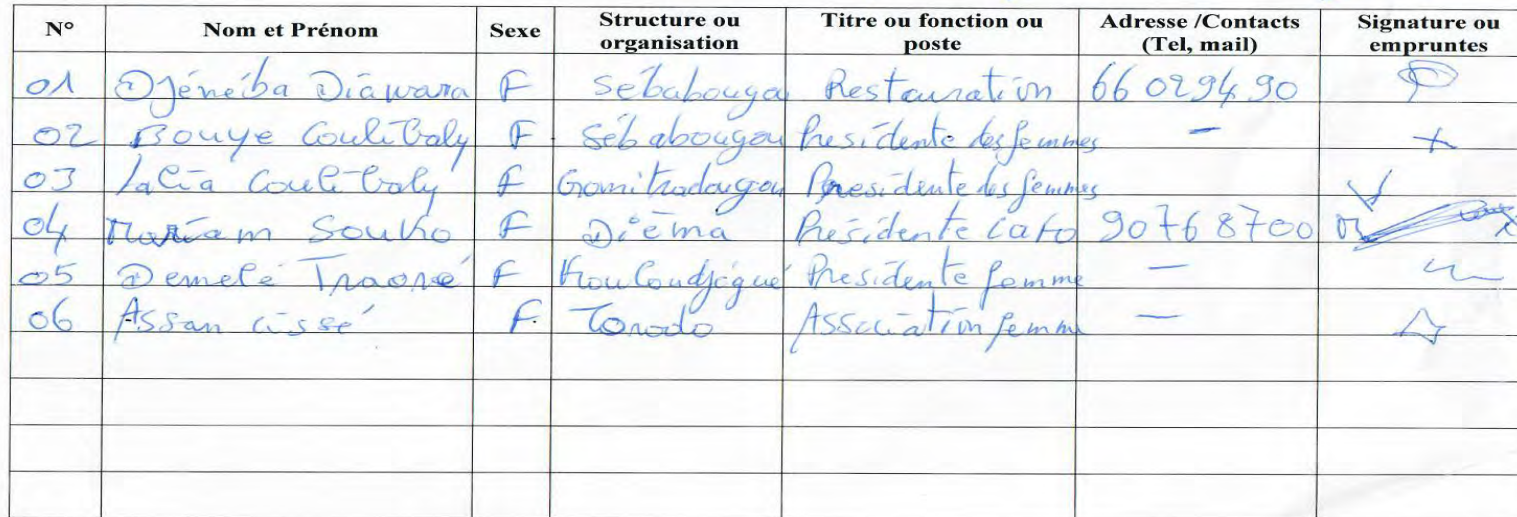 N° Nom et Prénom Sexe Structure ou organisation Titre ou fonction ou poste Adresse /Contacts (Tel, mail) Signature ou empruntes
01 Djénéba Diawara F Sébabougou Restauration 66 029490
02 Bouye Coulibaly F Sébabougou Presidente des femmes –
03 Lalia Coulibaly F Presidente des femmes
04 Mariam Souko F Diéma Présidente Cafo 90768700
05 Demelé Traoré F Presidente femme –
06 Assan cissé F. Torodo Association femme –